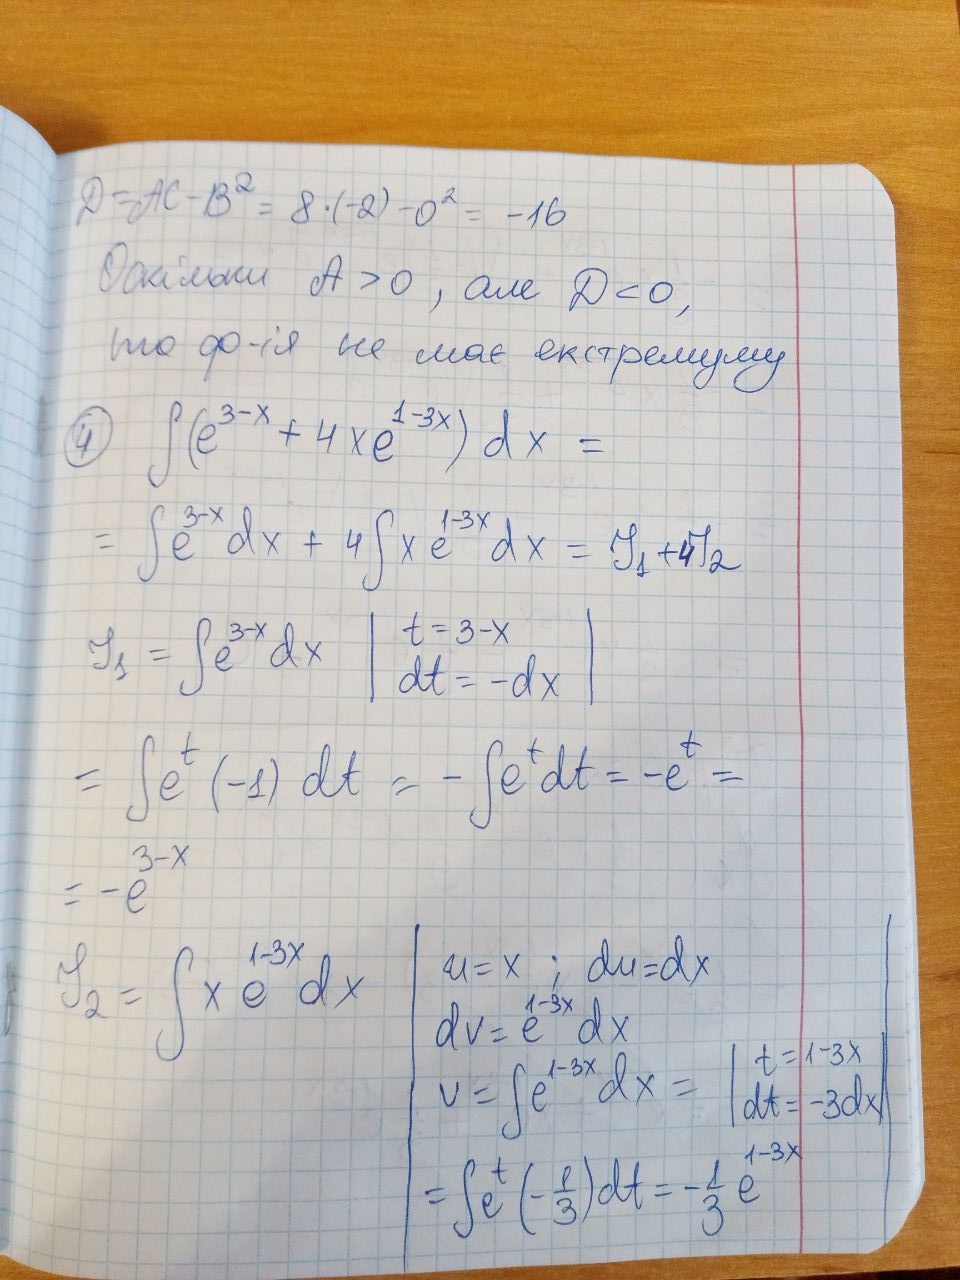 D = AC - B² = 8·(-2) - 0² = -16
Оскільки A > 0, але D < 0,
то ф-ія не має екстремуму
④ ∫(e^{3-x} + 4xe^{1-3x}) dx =
= ∫e^{3-x} dx + 4∫xe^{1-3x} dx = J₁ + 4J₂
J₁ = ∫e^{3-x} dx | t = 3-x
dt = -dx |
= ∫e^t (-1) dt = -∫e^t dt = -e^t =
= -e^{3-x}
J₂ = ∫x e^{1-3x} dx | u = x ; du = dx
dv = e^{1-3x} dx
v = ∫e^{1-3x} dx = | t = 1-3x
dt = -3dx |
= ∫e^t (-1/3) dt = -1/3 e^{1-3x}